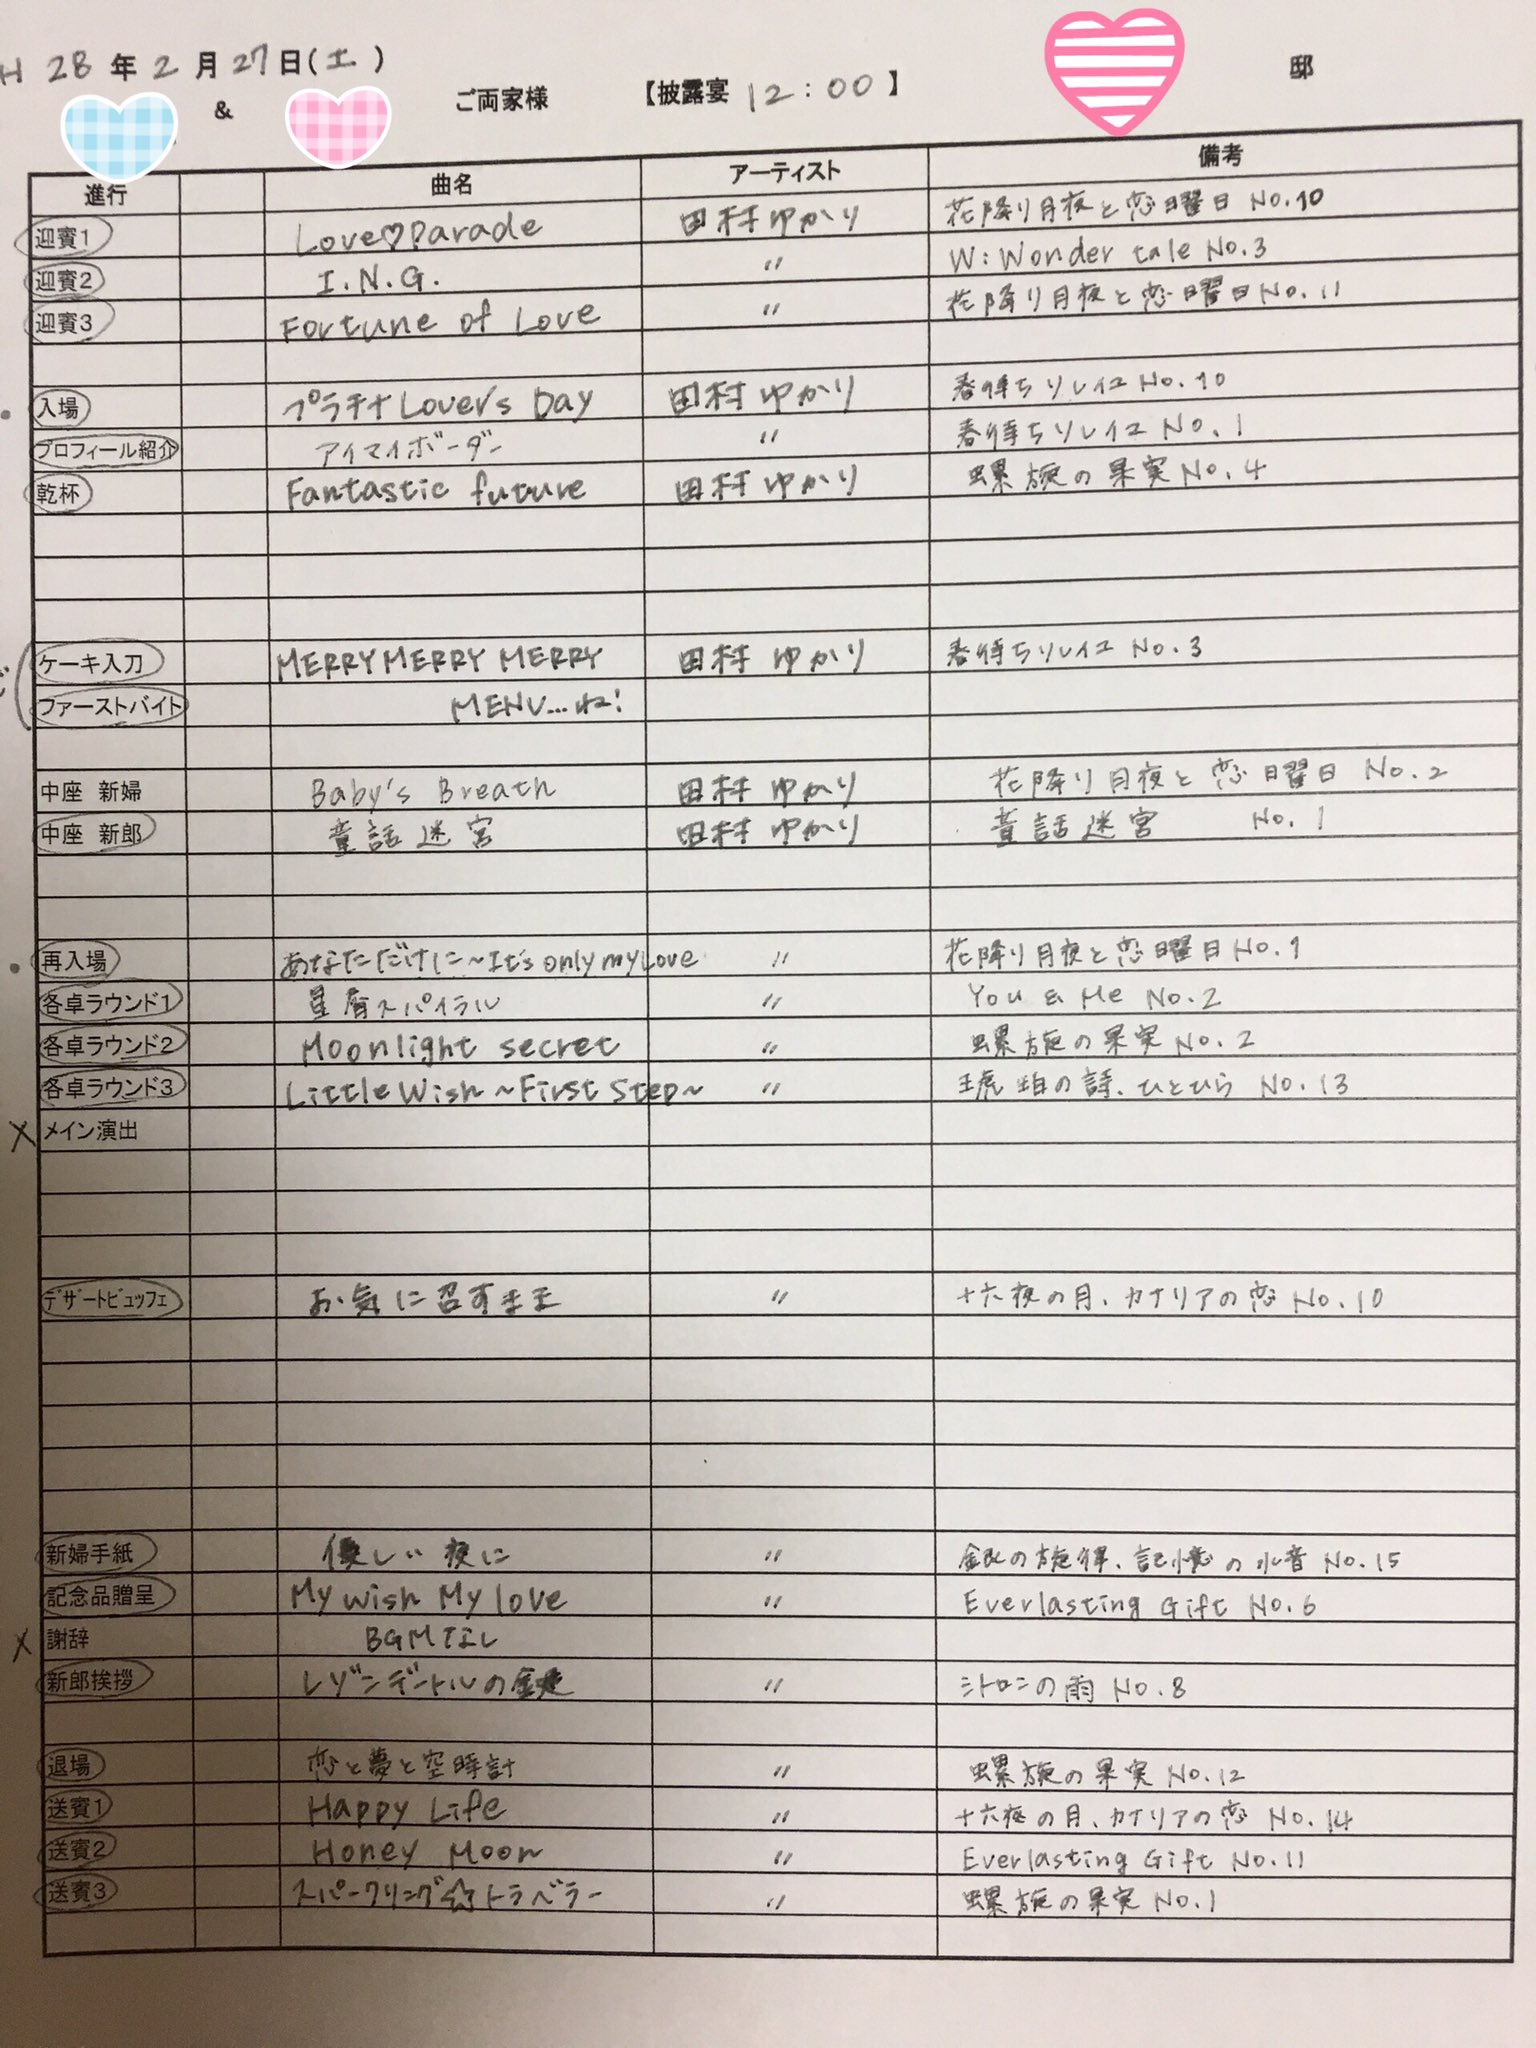 H 28年2月27日(土)
& ご両家様 【披露宴 12:00】 邸
進行 曲名 アーティスト 備考
迎賓1 Love♡Parade 田村ゆかり 花降り月夜と恋曜日 No.10
迎賓2 I.N.G. 〃 W:Wonder tale No.3
迎賓3 Fortune of Love 〃 花降り月夜と恋曜日 No.11
入場 プラチナLover's Day 田村ゆかり 春待ちソレイユ No.10
プロフィール紹介 アイマイボーダー 〃 春待ちソレイユ No.1
乾杯 Fantastic future 田村ゆかり 螺旋の果実 No.4
ケーキ入刀 MERRY MERRY MERRY 田村ゆかり 春待ちソレイユ No.3
ファーストバイト MENU…ね!
中座 新婦 Baby's Breath 田村ゆかり 花降り月夜と恋曜日 No.2
中座 新郎 童話迷宮 田村ゆかり 童話迷宮 No.1
再入場 あなただけに~It's only my Love 〃 花降り月夜と恋曜日 No.1
各卓ラウンド1 星屑スパイラル 〃 You & Me No.2
各卓ラウンド2 Moonlight secret 〃 螺旋の果実 No.2
各卓ラウンド3 Little Wish ~First Step~ 〃 琥珀の詩、ひとひら No.13
× メイン演出
デザートビュッフェ お気に召すまま 〃 十六夜の月、カナリアの恋 No.10
新婦手紙 優しい夜に 〃 銀の旋律、記憶の水音 No.15
記念品贈呈 My wish My love 〃 Everlasting Gift No.6
× 謝辞 BGMなし
新郎挨拶 レゾンデートルの鍵 〃 シトロンの雨 No.8
退場 恋と夢と空時計 〃 螺旋の果実 No.12
送賓1 Happy Life 〃 十六夜の月、カナリアの恋 No.14
送賓2 Honey Moon 〃 Everlasting Gift No.11
送賓3 スパークリング☆トラベラー 〃 螺旋の果実 No.1